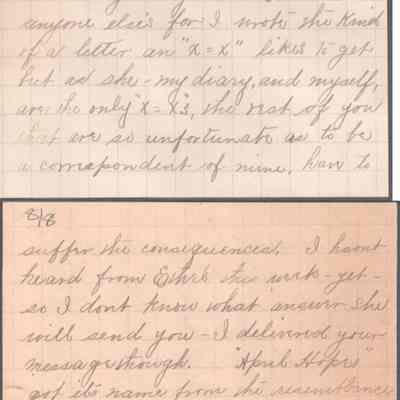 anyone else's for I wrote the kind
of a letter an "x = x" likes to get
but as she - my diary, and myself,
are the only "x = x's, the rest of you
that are so unfortunate as to be
a correspondent of mine, have to
8/8
suffer the consequences. I havnt
heard from Ethel this week - yet -
so I dont know what answer she
will send you - I delivered your
message though. "April Hopes"
got its name from the resemblance